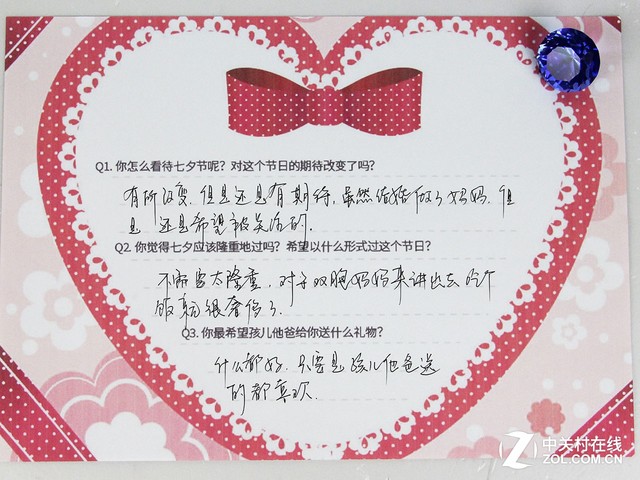 Q1. 你怎么看待七夕节呢？对这个节日的期待改变了吗？
有所改变，但是还是有期待，虽然结婚做了妈妈，但
是还是希望被关注的.
Q2. 你觉得七夕应该隆重地过吗？希望以什么形式过这个节日？
不需要太隆重，对于双胞妈妈来讲出去吃个
饭就很奢侈了.
Q3. 你最希望孩儿他爸给你送什么礼物？
什么都好，只要是孩儿他爸送
的都喜欢.
中关村在线
ZOL.COM.CN